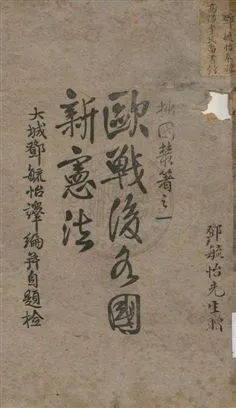 鄧毓怡先生贈
拙園叢著之一
歐戰後各國
新憲法
大城鄧毓怡譯編并自題檢